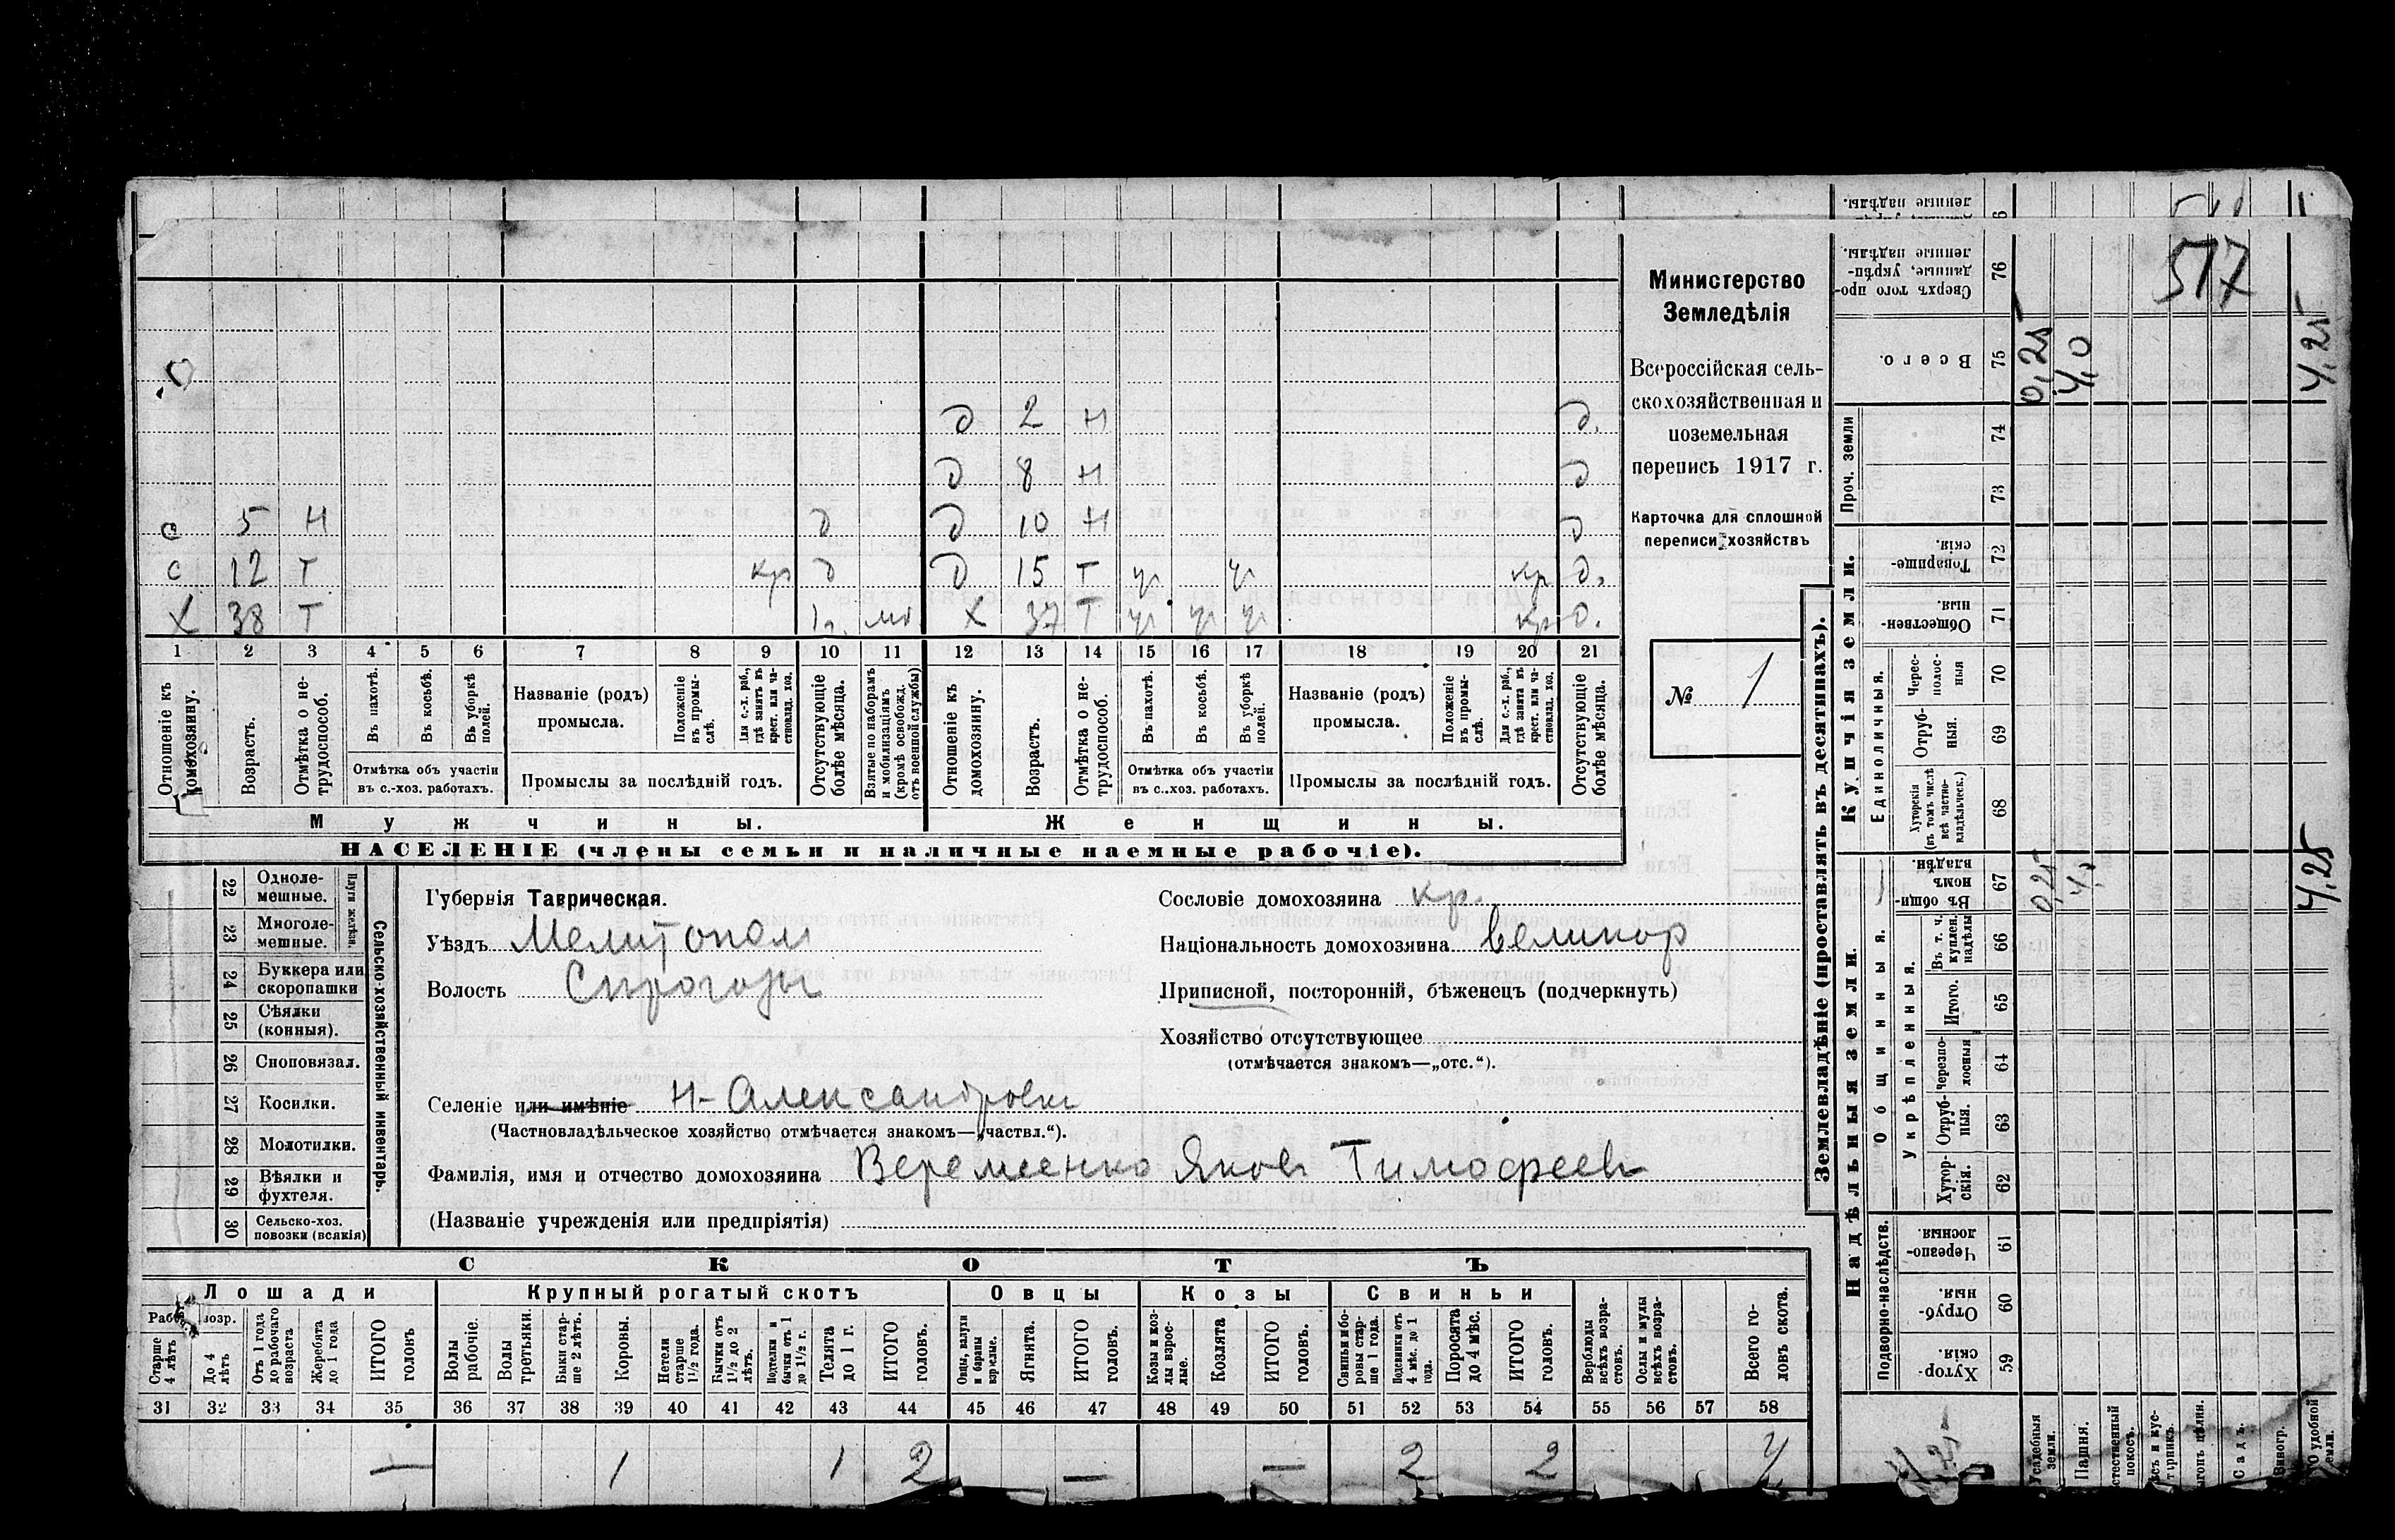 517
Министерство
Земледѣлія
Всероссійская сель-
скохозяйственная и
поземельная
перепись 1917 г.
Карточка для сплошной
переписи хозяйствъ
№ 1
д 2 н д.
д 8 н д
с 5 н д д 10 н д
с 12 т кр д д 15 т уг уг кр д.
х 38 т мо х 37 т уг уг уг кр д.
1 2 3 4 5 6 7 8 9 10 11 12 13 14 15 16 17 18 19 20 21
Отношеніе къ домохозяину.
Возрастъ.
Отмѣтка о не-трудоспособ.
Въ пахотѣ.
Въ косьбѣ.
Въ уборкѣ полей.
Отмѣтка объ участіи
въ с.-хоз. работахъ.
Названіе (родъ)
промысла.
Положеніе въ промы-слѣ.
Для с.-х. раб., гдѣ занятъ въ крест. или ча-стновлад. хоз.
Промыслы за послѣдній годъ.
Отсутствующіе болѣе мѣсяца.
Взятые по наборамъ и мобилизаціямъ (кромѣ освобожд. отъ военной службы)
Отношеніе къ домохозяину.
Возрастъ.
Отмѣтка о не-трудоспособ.
Въ пахотѣ.
Въ косьбѣ.
Въ уборкѣ полей.
Отмѣтка объ участіи
въ с.-хоз. работахъ.
Названіе (родъ)
промысла.
Положеніе въ промы-слѣ.
Для с.-х. раб., гдѣ занята въ крест. или ча-стновлад. хоз.
Промыслы за послѣдній годъ.
Отсутствующіе болѣе мѣсяца.
Мужчины. Женщины.
НАСЕЛЕНІЕ (члены семьи и наличные наемные рабочіе).
22 Одноле-мешные.
23 Многоле-мешные.
Плуги желѣзн.
24 Буккера или скоропашки
25 Сѣялки (конныя).
26 Сноповязал.
27 Косилки.
28 Молотилки.
29 Вѣялки и фухтеля.
30 Сельско-хоз. повозки (всякія)
Сельско-хозяйственный инвентарь.
Губернія Таврическая.
Уѣздъ Мелитопол
Волость Сирогозы
Сословіе домохозяина кр.
Національность домохозяина великор
Приписной, посторонній, бѣженецъ (подчеркнуть)
Хозяйство отсутствующее
(отмѣчается знакомъ—„отс.“).
Селеніе или имѣніе Н-Александровка
(Частновладѣльческое хозяйство отмѣчается знакомъ—„частвл.“).
Фамилія, имя и отчество домохозяина Веремеенко Яковъ Тимофеевъ
(Названіе учрежденія или предпріятія)
СКОТЪ
Лошади Крупный рогатый скотъ Овцы Козы Свиньи
Старше 4 лѣтъ
До 4 лѣтъ
Отъ 1 года до рабочаго возраста
Жеребята до 1 года
ИТОГО головъ
Волы рабочіе.
Волы третьяки.
Быки стар-ше 2 лѣтъ.
Коровы.
Нетели старше 1½ года.
Бычки отъ 1½ до 2 лѣтъ.
Подтелки и бычки отъ 1 до 1½ г.
Телята до 1 г.
ИТОГО головъ.
Овцы, валухи и бараны взрослые.
Ягнята.
ИТОГО головъ.
Козы и коз-лы взрос-лые.
Козлята
ИТОГО головъ.
Свиньи и бо-ровы стар-ше 1 года.
Подсвинки отъ 4 мѣс. до 1 года.
Поросята до 4 мѣс.
ИТОГО головъ.
Верблюды всѣхъ возра-стовъ.
Ослы и мулы всѣхъ возра-стовъ.
Всего го-ловъ скота.
31 32 33 34 35 36 37 38 39 40 41 42 43 44 45 46 47 48 49 50 51 52 53 54 55 56 57 58
— 1 1 2 — — 2 2 4
Землевладѣніе (проставлять въ десятинахъ).
Купчія земли.
Надѣльныя земли.
Сверхъ того про-данные, укрѣп-ленные надѣлы. 76
Всего. 75 0,25 4,0 4,25
Проч. земли 74 73
Товарище-скія. 72
Обществен-ныя. 71
Единоличныя.
Черес-полос-ныя 70
Отруб-ныя. 69
Хуторскія (въ томъ числѣ всѣ частно-владѣльческ.) 68
Въ общи-номъ владѣн. 67 0,25 4,0 4,25
Общинныя.
Укрѣпленныя.
Въ т. ч. куплен. надѣлы 66
Итого. 65
Черезпо-лосныя 64
Отруб-ныя. 63
Хутор-скія. 62
Подворно-наслѣдств.
Черезпо-лосныя 61
Отруб-ныя. 60
Хутор-скія. 59
Усадебныя земли.
Пашня.
Садъ.
Виногр.